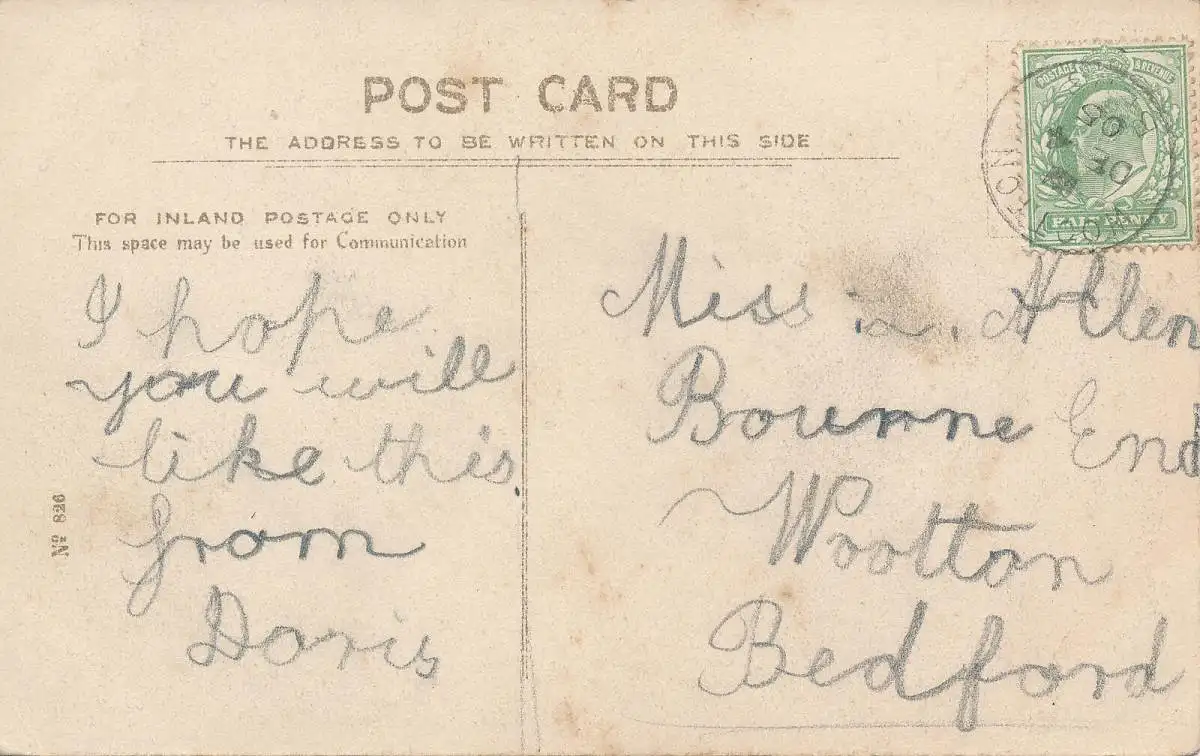 POST CARD
THE ADDRESS TO BE WRITTEN ON THIS SIDE
FOR INLAND POSTAGE ONLY
This space may be used for Communication
I hope
you will
like this
from
Doris
Nº 826
POSTAGE & REVENUE
HALFPENNY
DE 4
05
Miss Allen
Bourne End
Wootton
Bedford